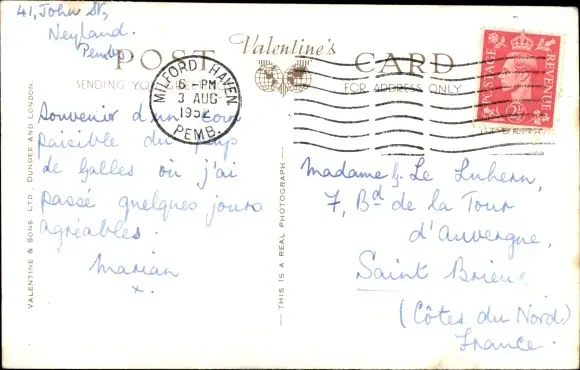 41, John St,
Neyland.
Pemb.
POST Valentine's CARD
SENDING YOU FOR ADDRESS ONLY
MILFORD HAVEN
6 - PM
3 AUG
1952
PEMB.
POSTAGE REVENUE
2½
Souvenir d'un coin
paisible du pays
de Galles où j'ai
passé quelques jours
agréables.
Marian
x.
VALENTINE & SONS LTD., DUNDEE AND LONDON.
THIS IS A REAL PHOTOGRAPH
Madame G. Le Luhern,
7, Bd de la Tour
d'Auvergne,
Saint Brieuc
(Côtes du Nord)
France.